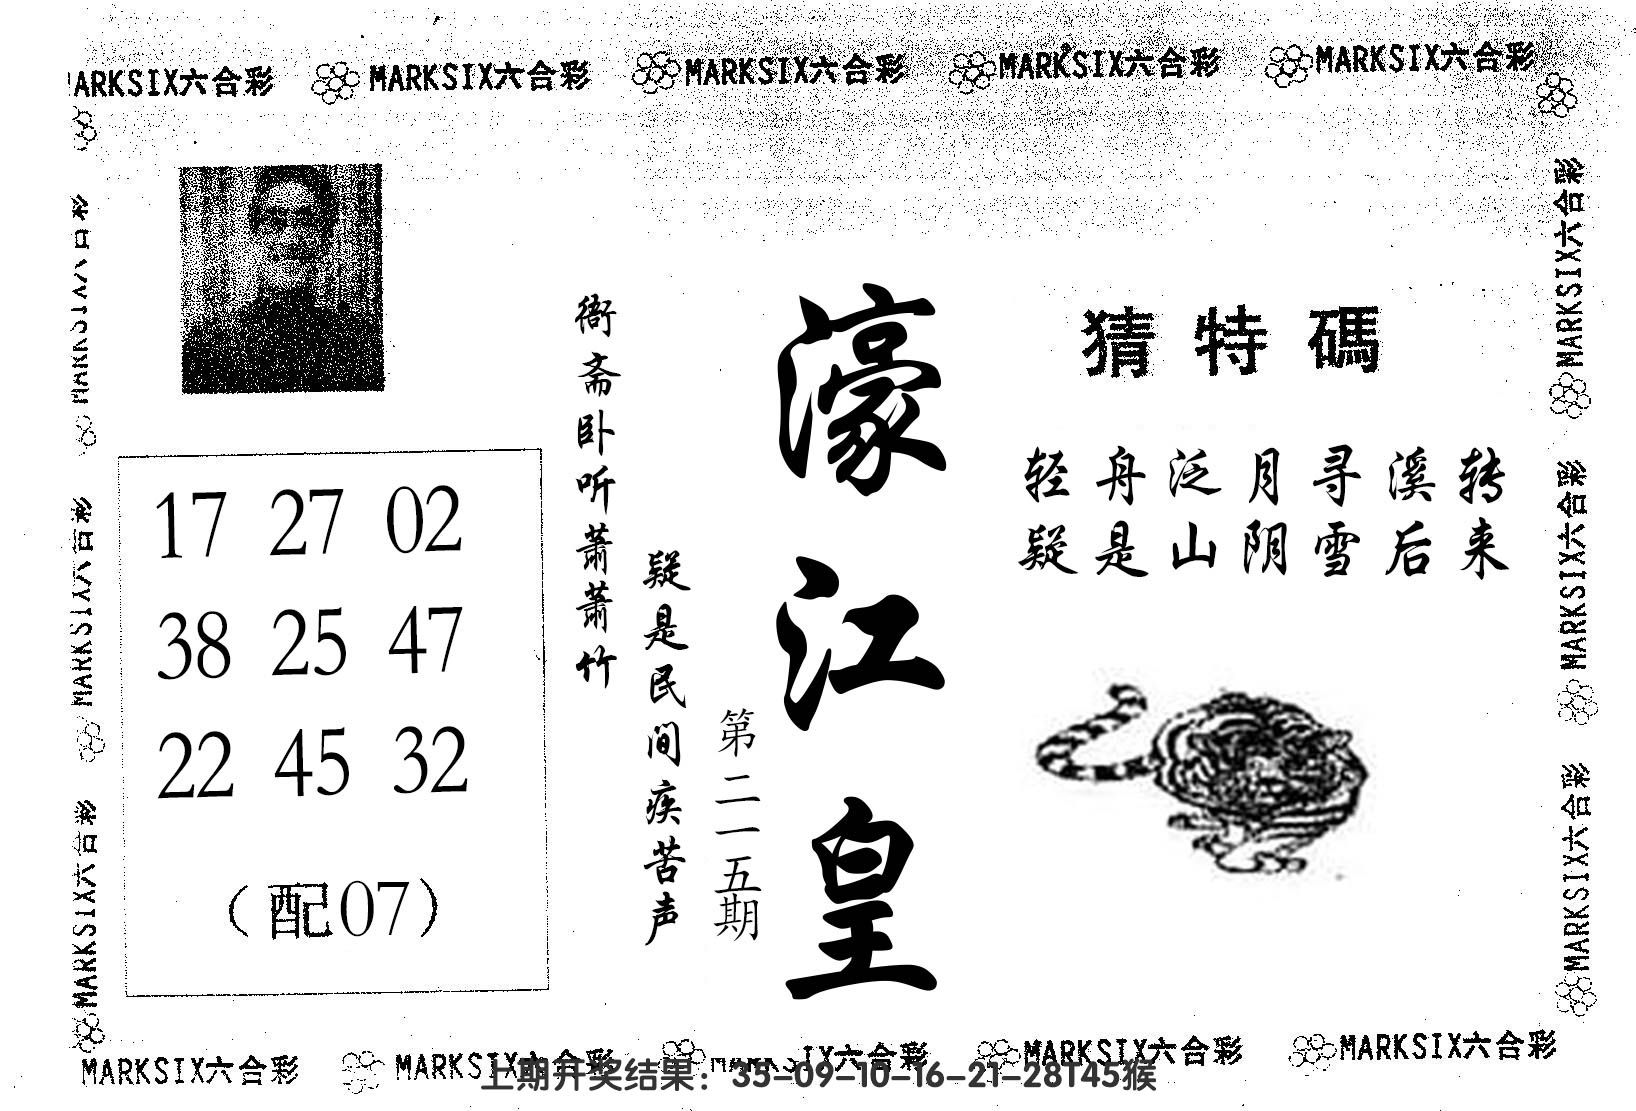 MARKSIX六合彩 MARKSIX六合彩 MARKSIX六合彩 MARKSIX六合彩 MARKSIX六合彩
MARKSIX六合彩
MARKSIX六合彩
MARKSIX六合彩
17 27 02
38 25 47
22 45 32
（配07）
衙斋卧听萧萧竹
疑是民间疾苦声
第二一五期
濠江皇
猜特碼
轻舟泛月寻溪转
疑是山阴雪后来
MARKSIX六合彩
MARKSIX六合彩
MARKSIX六合彩
MARKSIX六合彩 MARKSIX六合彩 MARKSIX六合彩 MARKSIX六合彩 MARKSIX六合彩
上期开奖结果：35-09-10-16-21-28T45猴